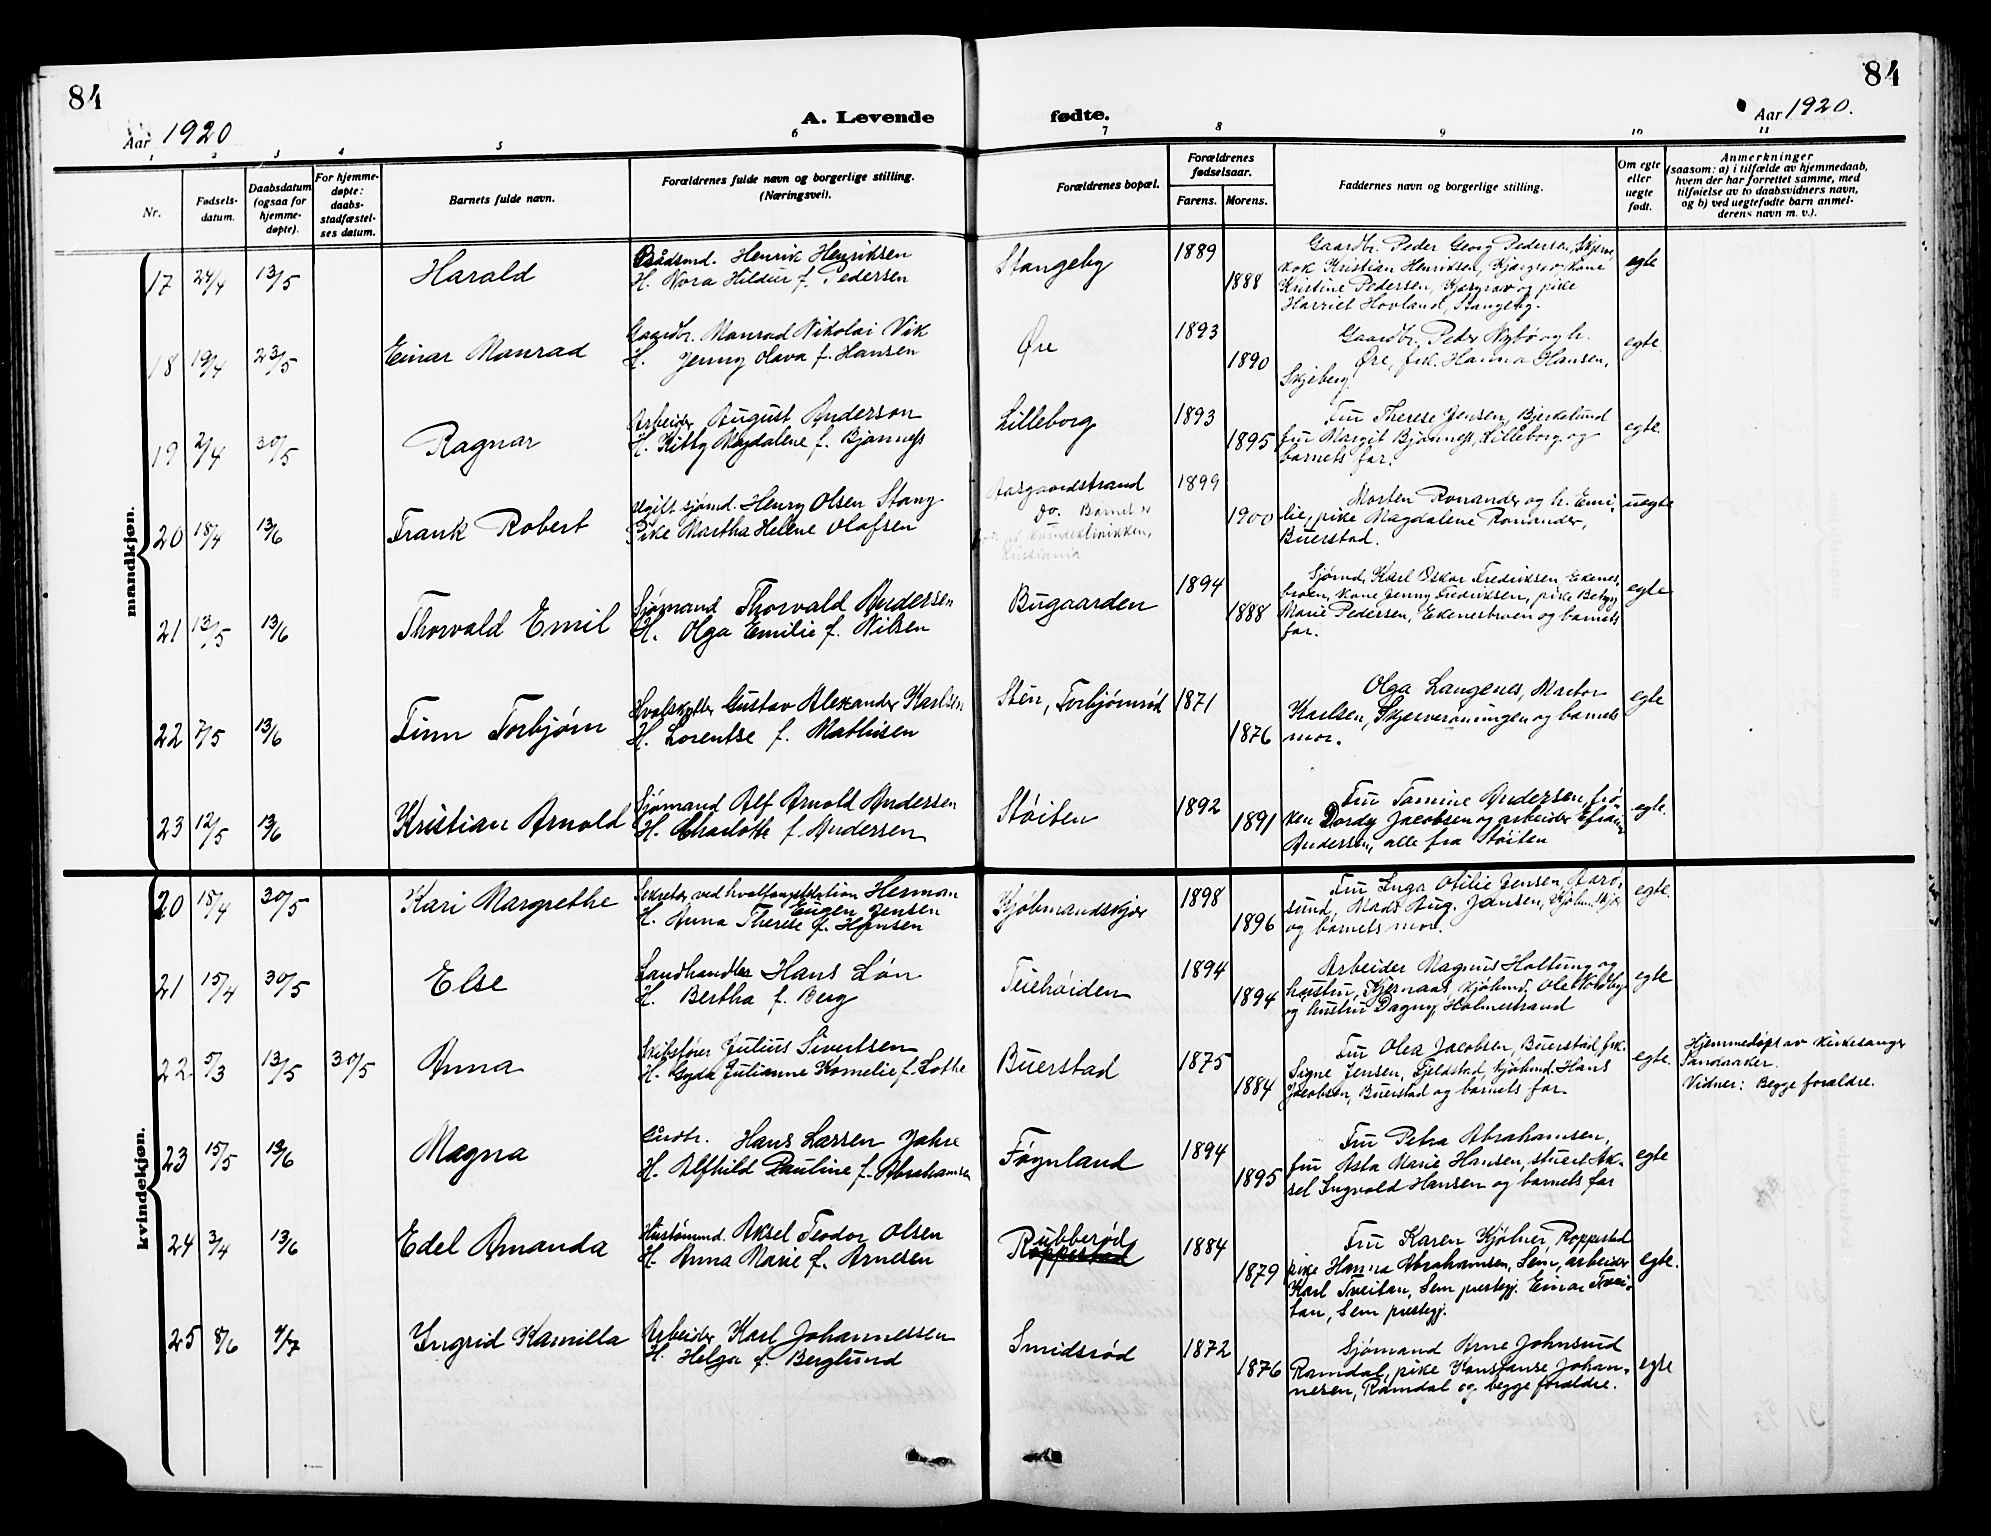 84
84
Aar 1920
A. Levende
fødte.
Aar 1920.
1 2 3 4 5 6 7 8 9 10 11
Nr.
Fødselsdatum.
Daabsdatum (ogsaa for hjemmedøpte).
For hjemmedøpte: daabsstadfæstelses datum.
Barnets fulde navn.
Forældrenes fulde navn og borgerlige stilling. (Næringsvei).
Forældrenes bopæl.
Forældrenes fødselsaar.
Farens. Morens.
Faddernes navn og borgerlige stilling.
Om egte eller uegte født.
Anmerkninger
(saasom: a) i tilfælde av hjemmedaab,
hvem der har forrettet samme, med
tilføielse av to daabsvidners navn,
og b) ved uegtefødte barn anmelderens navn m. v.).
mandkjøn.
17 24/4 13/5 Harald
Bådsmd. Henrik Henriksen
H. Nora Hildur f. Pedersen
Stangeby 1889 1888
Gaardbr. Peder Georg Pedersen,
kok Kristian Henriksen, og kone
Kristine Pedersen, og pike
Harriet Hovland, Stangeby.
egte
18 19/4 23/5 Einar Monrad
Gaardbr. Monrad Nikolai Vik
H. Jenny Olava f. Hansen
Øre 1893 1890
Gaardbr. Peder Nybø og h.
Øre, frk. Hanna Hansen,
Skjeberg.
egte.
19 2/4 30/5 Ragnar
Arbeider August Anderson
H. Kitty Magdalene f. Bjønness
Lilleborg 1893 1895
Fru Therese Jensen, Bjerkelund
fru Margit Bjønness, Lilleborg og
barnets far.
egte.
20 18/4 13/6 Frank Robert
Ugift sjømd. Henry Olsen Stang
Pike Martha Helene Olafsen
Aasgaardstrand
Do. Barnet er
født på kvindeklinikken,
Kristiania
1899 1900
Morten Ronander og h. Emilie, pike Magdalene Ronander,
Buerstad.
uegte
21 13/5 13/6 Thorvald Emil
Sjømand Thorvald Andersen
H. Olga Emilie f. Nilsen
Bugaarden 1894 1888
Sjømd. Karl Oskar Fredriksen, Ekenesbroen, kone Jenny Fredriksen, pike Betzy
Marie Pedersen, Ekenesbroen og barnets
far.
egte
22 7/5 13/6 Finn Torbjørn
Hvalskytter Gustav Alexander Karlsen
H. Lorentse f. Mathisen
Sten, Torbjørnrød 1871 1876
Olga Langenes, Martor
Karlsen, og barnets
mor.
egte
23 12/5 13/6 Kristian Arnold
Sjømand Alf Arnold Andersen
H. Charlotte f. Andersen
Støiten 1892 1891
Fru Tomine Andersen, frøken Dordy Jacobsen og arbeider Efraim
Andersen, alle fra Støiten
egte.
kvindekjøn.
20 15/4 30/5 Kari Margrethe
Sekretær ved hvalfangststation Herman
Eugen Jensen
H. Anna Therese f. Hansen
Kjøbmandskjær 1898 1896
Fru Inga Otilie Jensen, Aarøsund, Mads Aug. Jansen, Kjøbm.skjær
og barnets mor.
egte.
21 15/4 30/5 Else
Landhandler Hans Løn
H. Bertha f. Berg
Teiehøiden 1894 1894
Arbeider Magnus Holtung og
hustru, Kjernaas, kjøbmd. Ole Noldby
og hustru Dagny, Holmestrand
egte
22 5/3 13/5 30/5 Anna
Skibsfører Julius Sivertsen
H. Gyda Julianne Kornelie f. Lothe
Buerstad 1875 1884
Fru Olea Jacobsen, Buerstad, frk.
Signe Jensen, Fjeldstad, kjøbmd. Hans
Jacobsen, Buerstad og barnets far.
egte.
Hjemmedøpt av kirkesanger
Sandaaker.
Vidner: Begge foraldre.
23 15/5 13/6 Magna
Grdbr. Hans Larsen Jahre
H. Alfhild Pauline f. Abrahamsen
Føynland 1894 1895
Fru Petra Abrahamsen,
fru Asta Marie Hansen, stuert Aksel Ingvald Hansen og barnets far
egte
24 3/4 13/6 Edel Amanda
Hustømmd. Aksel Teodor Olsen
H. Anna Marie f. Arnesen
Rubberød
Roppestad
1884 1879
Fru Karen Kjølner, Roppestad
pike Hanna Abrahamsen, Sem, arbeider
Karl Tveitan, Sem prestegj. Einar Tveitan, Sem prestegj.
egte.
25 8/6 4/7 Ingrid Kamilla
Arbeider Karl Johannessen
H. Helga f. Berglund
Smidsrød 1872 1876
Sjømand Arne Johnsrud
Ramdal, pike Konstanse Johannesen, Ramdal og begge foraldre.
egte